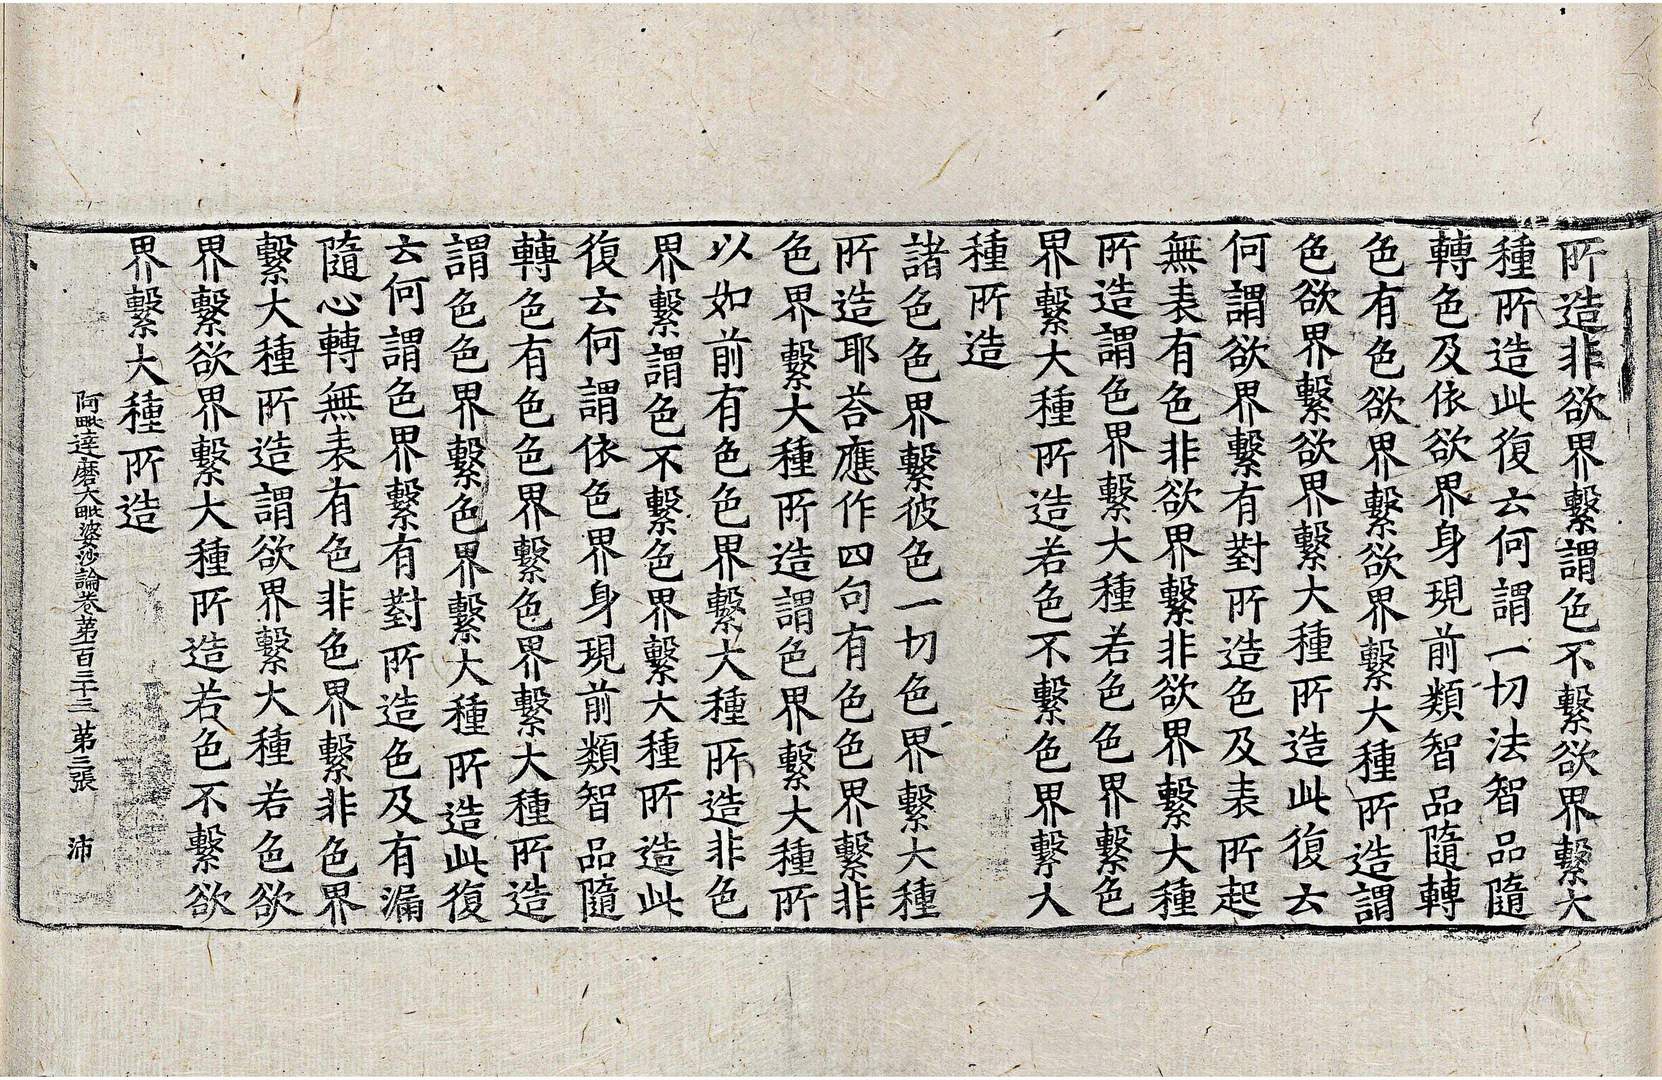 所造非欲界繫謂色不繫欲界繫大
種所造此復云何謂一切法智品隨
轉色及依欲界身現前類智品隨轉
色有色欲界繫欲界繫大種所造謂
色欲界繫欲界繫大種所造此復云
何謂欲界繫有對所造色及表所起
無表有色非欲界繫非欲界繫大種
所造謂色界繫大種若色色界繫色
界繫大種所造若色不繫色界繫大
種所造
諸色色界繫彼色一切色界繫大種
所造耶荅應作四句有色色界繫非
色界繫大種所造謂色界繫大種所
以如前有色色界繫大種所造非色
界繫謂色不繫色界繫大種所造此
復云何謂依色界身現前類智品隨
轉色有色色界繫色界繫大種所造
謂色色界繫色界繫大種所造此復
云何謂色界繫有對所造色及有漏
隨心轉無表有色非色界繫非色界
繫大種所造謂欲界繫大種若色欲
界繫欲界繫大種所造若色不繫欲
界繫大種所造
阿毗達磨大毗婆沙論卷苐一百三十三 苐三張 沛